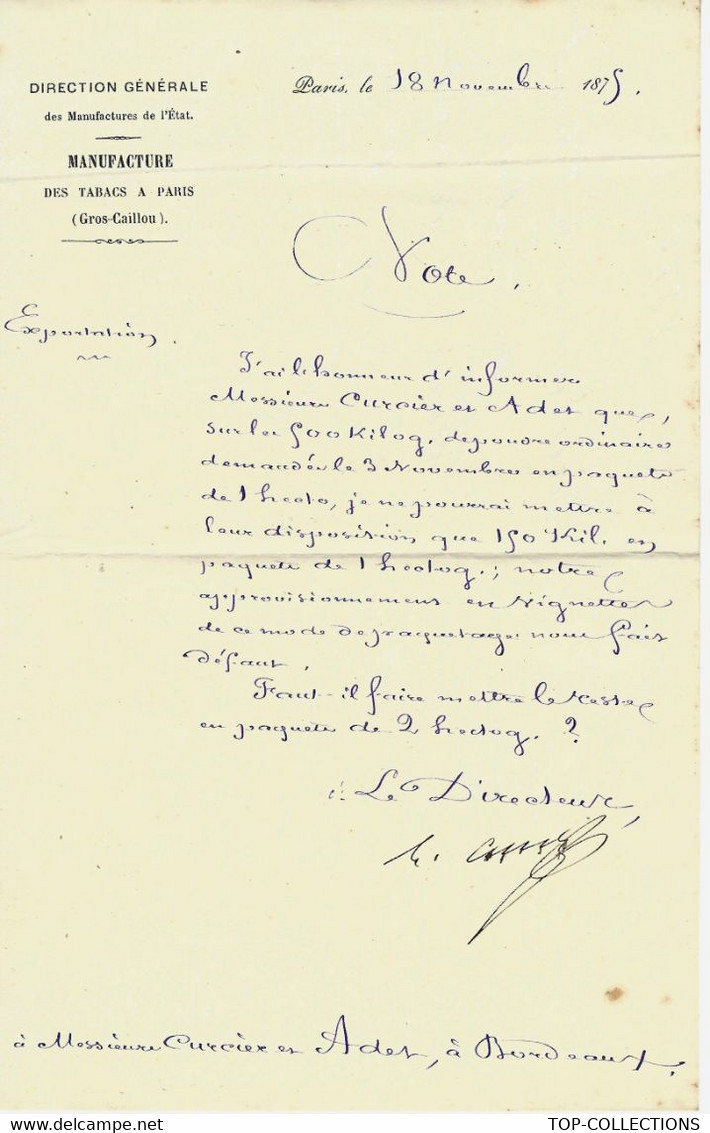 DIRECTION GÉNÉRALE
des Manufactures de l'État.
MANUFACTURE
DES TABACS A PARIS
(Gros-Caillou).
Paris, le 18 Novembre 1875.
Note.
Exportation.
J'ai l'honneur d'informer
Messieurs Curcier et Adet que,
sur les 500 Kilog. de poudre ordinaire
demandés le 3 Novembre en paquets
de 1 hecto, je ne pourrai mettre à
leur disposition que 150 Kil. en
paquets de 1 hectog.; notre
approvisionnement en vignettes
de ce mode de paquetage nous fait
défaut.
Faut-il faire mettre le reste
en paquets de 2 hectog. ?
Le Directeur,
à Messieurs Curcier et Adet, à Bordeaux.
TOP-COLLECTIONS